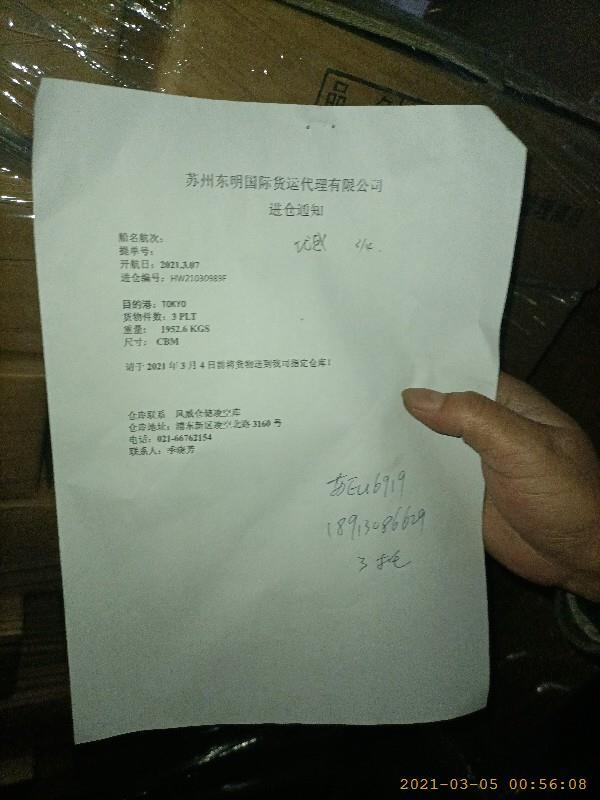 品名
苏州东明国际货运代理有限公司
进仓通知
船名航次：
提单号：
开航日：2021.3.07
进仓编号：HW21030983F
目的港：TOKYO
货物件数：3 PLT
重量： 1952.6 KGS
尺寸： CBM
请于 2021 年 3 月 4 日前将货物送到我司指定仓库！
仓库联系 风威仓储凌空库
仓库地址：浦东新区凌空北路 3160 号
电话：021-66762154
联系人：季晓芳
苏EU6919
18913086629
3托
2021-03-05 00:56:08